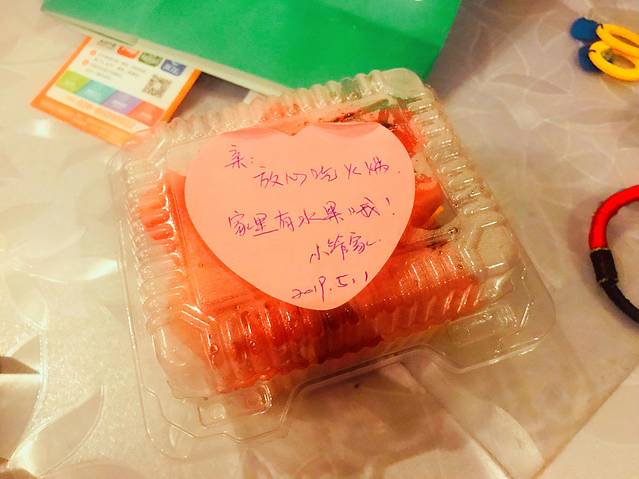 亲:
放心吃火锅.
家里有水果哦!
小管家
2019.5.1